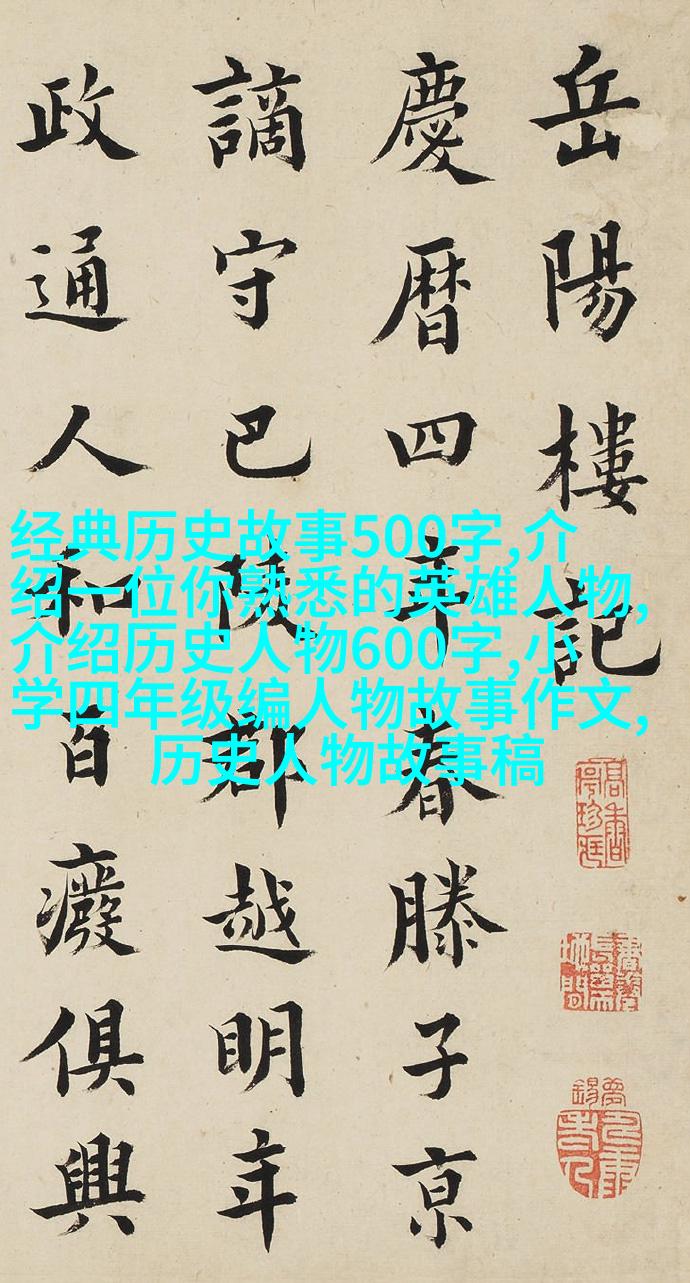 岳陽樓記
慶曆四年春滕子京
謫守巴陵郡越明年
政通人和百癈俱興
经典历史故事500字,介
绍一位你熟悉的英雄人物,
介绍历史人物600字,小
学四年级编人物故事作文,
历史人物故事稿